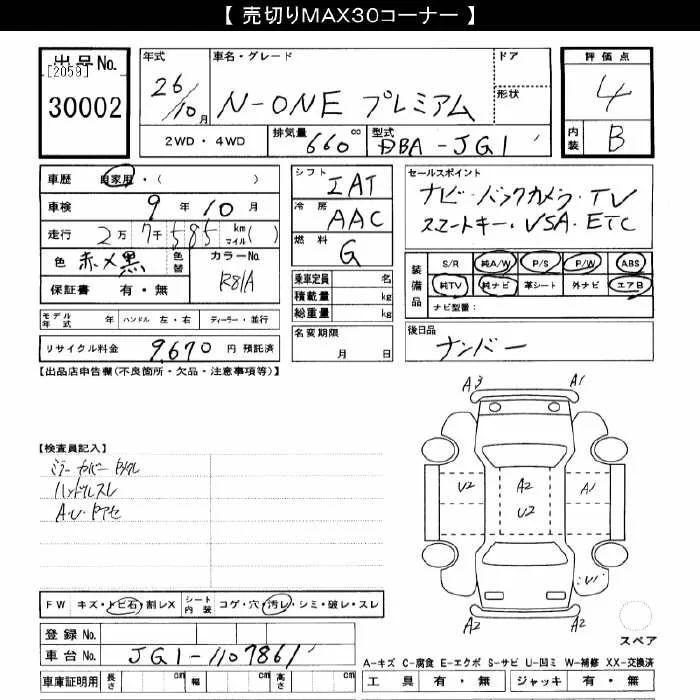 【 売切りMAX30コーナー 】
出品No.
[2059]
30002
年式 車名・グレード ドア
26/10月 N-ONE プレミアム 形状
2WD・4WD 排気量 660cc 型式 DBA-JG1
評価点
4
内装 B
車歴 自家用・( )
車検 9年10月
走行 2万7千585 km マイル( )
色 赤メ黒 色替 カラーNo. R81A
保証書 有・無
シフト IAT
冷房 AAC
燃料 G
乗車定員 名
積載量 kg
総重量 kg
セールスポイント
ナビ・バックカメラ・TV
スマートキー・VSA・ETC
装備品 S/R 純A/W P/S P/W ABS
純TV 純ナビ 革シート 外ナビ エアB
ナビ型番:
モデル年式 年 ハンドル 左・右 ディーラー・並行
リサイクル料金 9,670 円 預託済
名変期限
月 日
後日品
ナンバー
【出品店申告欄(不良箇所・欠品・注意事項等)】
A3 A1
【検査員記入】
ミラーカバー
ハンドルスレ
A・U・
U2 A2 U2 A1
U1
A2 A2
FW キズ・トビ石・割レX シート内装 コゲ・穴・汚レ・シミ・破レ・スレ
スペア
登録No.
車台No. JG1-1107861
A-キズ C-腐食 E-エクボ S-サビ U-凹ミ W-補修 XX-交換済
車庫証明用 長さ cm 幅 cm 高さ cm
工具 有・無 ジャッキ 有・無